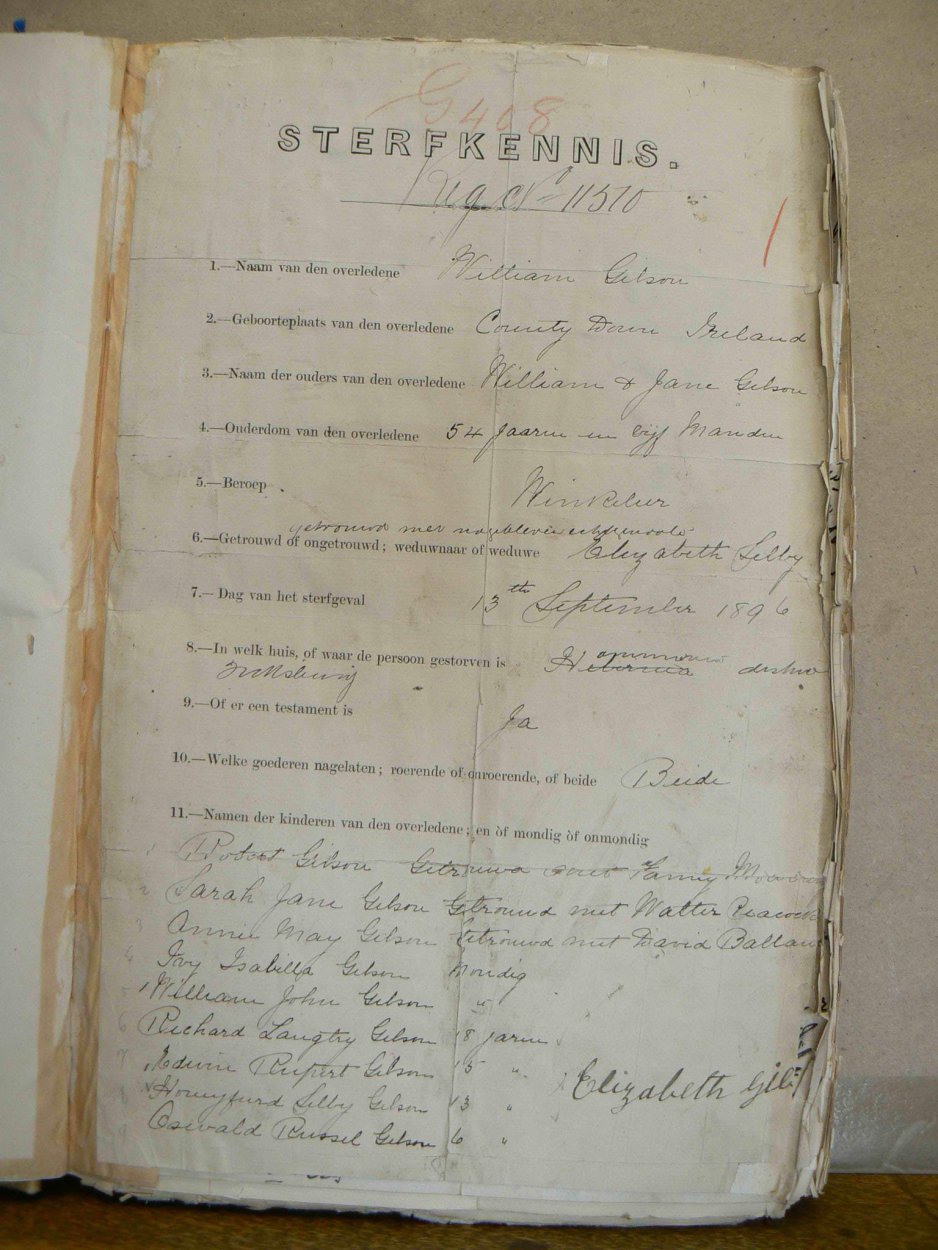 G408
STERFKENNIS.
Reg No 11510
1.—Naam van den overledene William Gibson
2.—Geboorteplaats van den overledene County Down Ireland
3.—Naam der ouders van den overledene William & Jane Gibson
4.—Ouderdom van den overledene 54 Jaaren en vijf Manden
5.—Beroep Winkelier
getrouwd met nagebleven echtgenoote
6.—Getrouwd of ongetrouwd; weduwnaar of weduwe Elizabeth Selby
7.—Dag van het sterfgeval 13th September 1896
8.—In welk huis, of waar de persoon gestorven is
9.—Of er een testament is Ja
10.—Welke goederen nagelaten; roerende of onroerende, of beide Beide
11.—Namen der kinderen van den overledene; en òf mondig òf onmondig
1 Robert Gibson Getrouwd met Fanny
2 Sarah Jane Gibson Getrouwd met Walter Peacock
3 Annie May Gibson Getrouwd met David Ballan
4 Ivy Isabella Gibson Mondig
5 William John Gibson "
6 Richard Langtry Gibson 18 Jaren
7 Edwin Rupert Gibson 15 "
8 Honeyfurd Selby Gibson 13 "
9 Oswald Russel Gibson 6 "
Elizabeth Gib